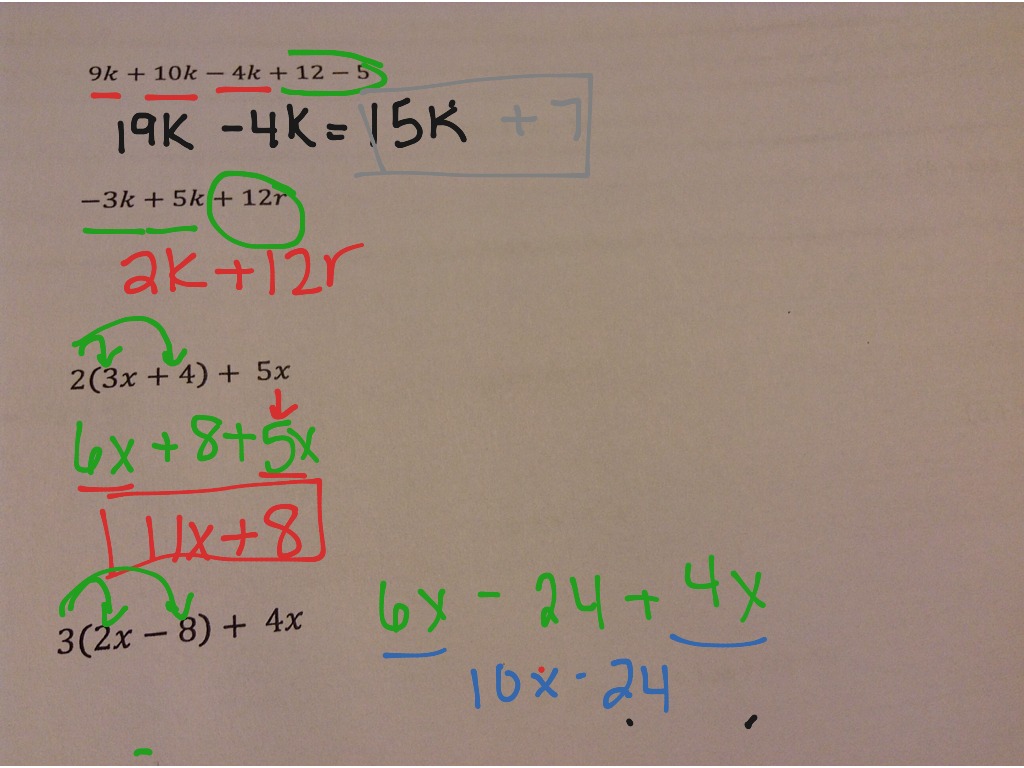 9k + 10k − 4k + 12 − 5
19K - 4K = 15K + 7
−3k + 5k + 12r
2K + 12r
2(3x + 4) + 5x
6x + 8 + 5x
11x + 8
3(2x − 8) + 4x
6x - 24 + 4x
10x - 24